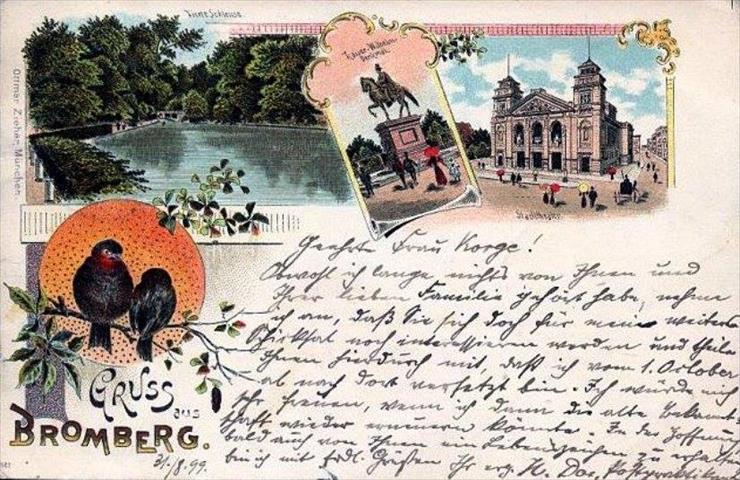 Vierte Schleuse.
Kaiser-Wilhelm-
Denkmal.
Stadttheater.
Ottmar Zieher, München
Geehrte Frau Korge!
Obwohl ich lange nichts von Ihnen und
Ihrer lieben Familie gehört habe, nehme
ich an, daß Sie sich doch für mein weiteres
Schicksal noch interessieren werden und theile
Ihnen hierdurch mit, daß ich vom 1. October
ab nach dort versetzt bin. Ich würde mich
sehr freuen, wenn ich dann die alte Bekannt-
schaft wieder erneuern könnte. In der Hoffnung
bald auch von Ihnen ein Lebenszeichen zu erhalten
bin ich mit frdl. Grüßen Ihr erg.
GRUSS
aus
BROMBERG.
31./8.99.